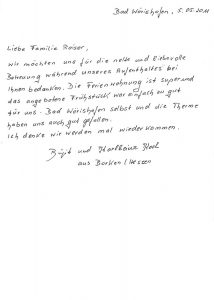 Bad Wörishofen, 5.05.2011
Liebe Familie Räder,
wir möchten uns für die nette und liebevolle
Betreuung während unseres Aufenthaltes bei
Ihnen bedanken. Die Ferienwohnung ist super und
das angebotene Frühstück war einfach zu gut
für uns. Bad Wörishofen selbst und die Therme
haben uns auch gut gefallen.
Ich denke wir werden mal wieder kommen.
und Karlheinz
aus Borken / Hessen